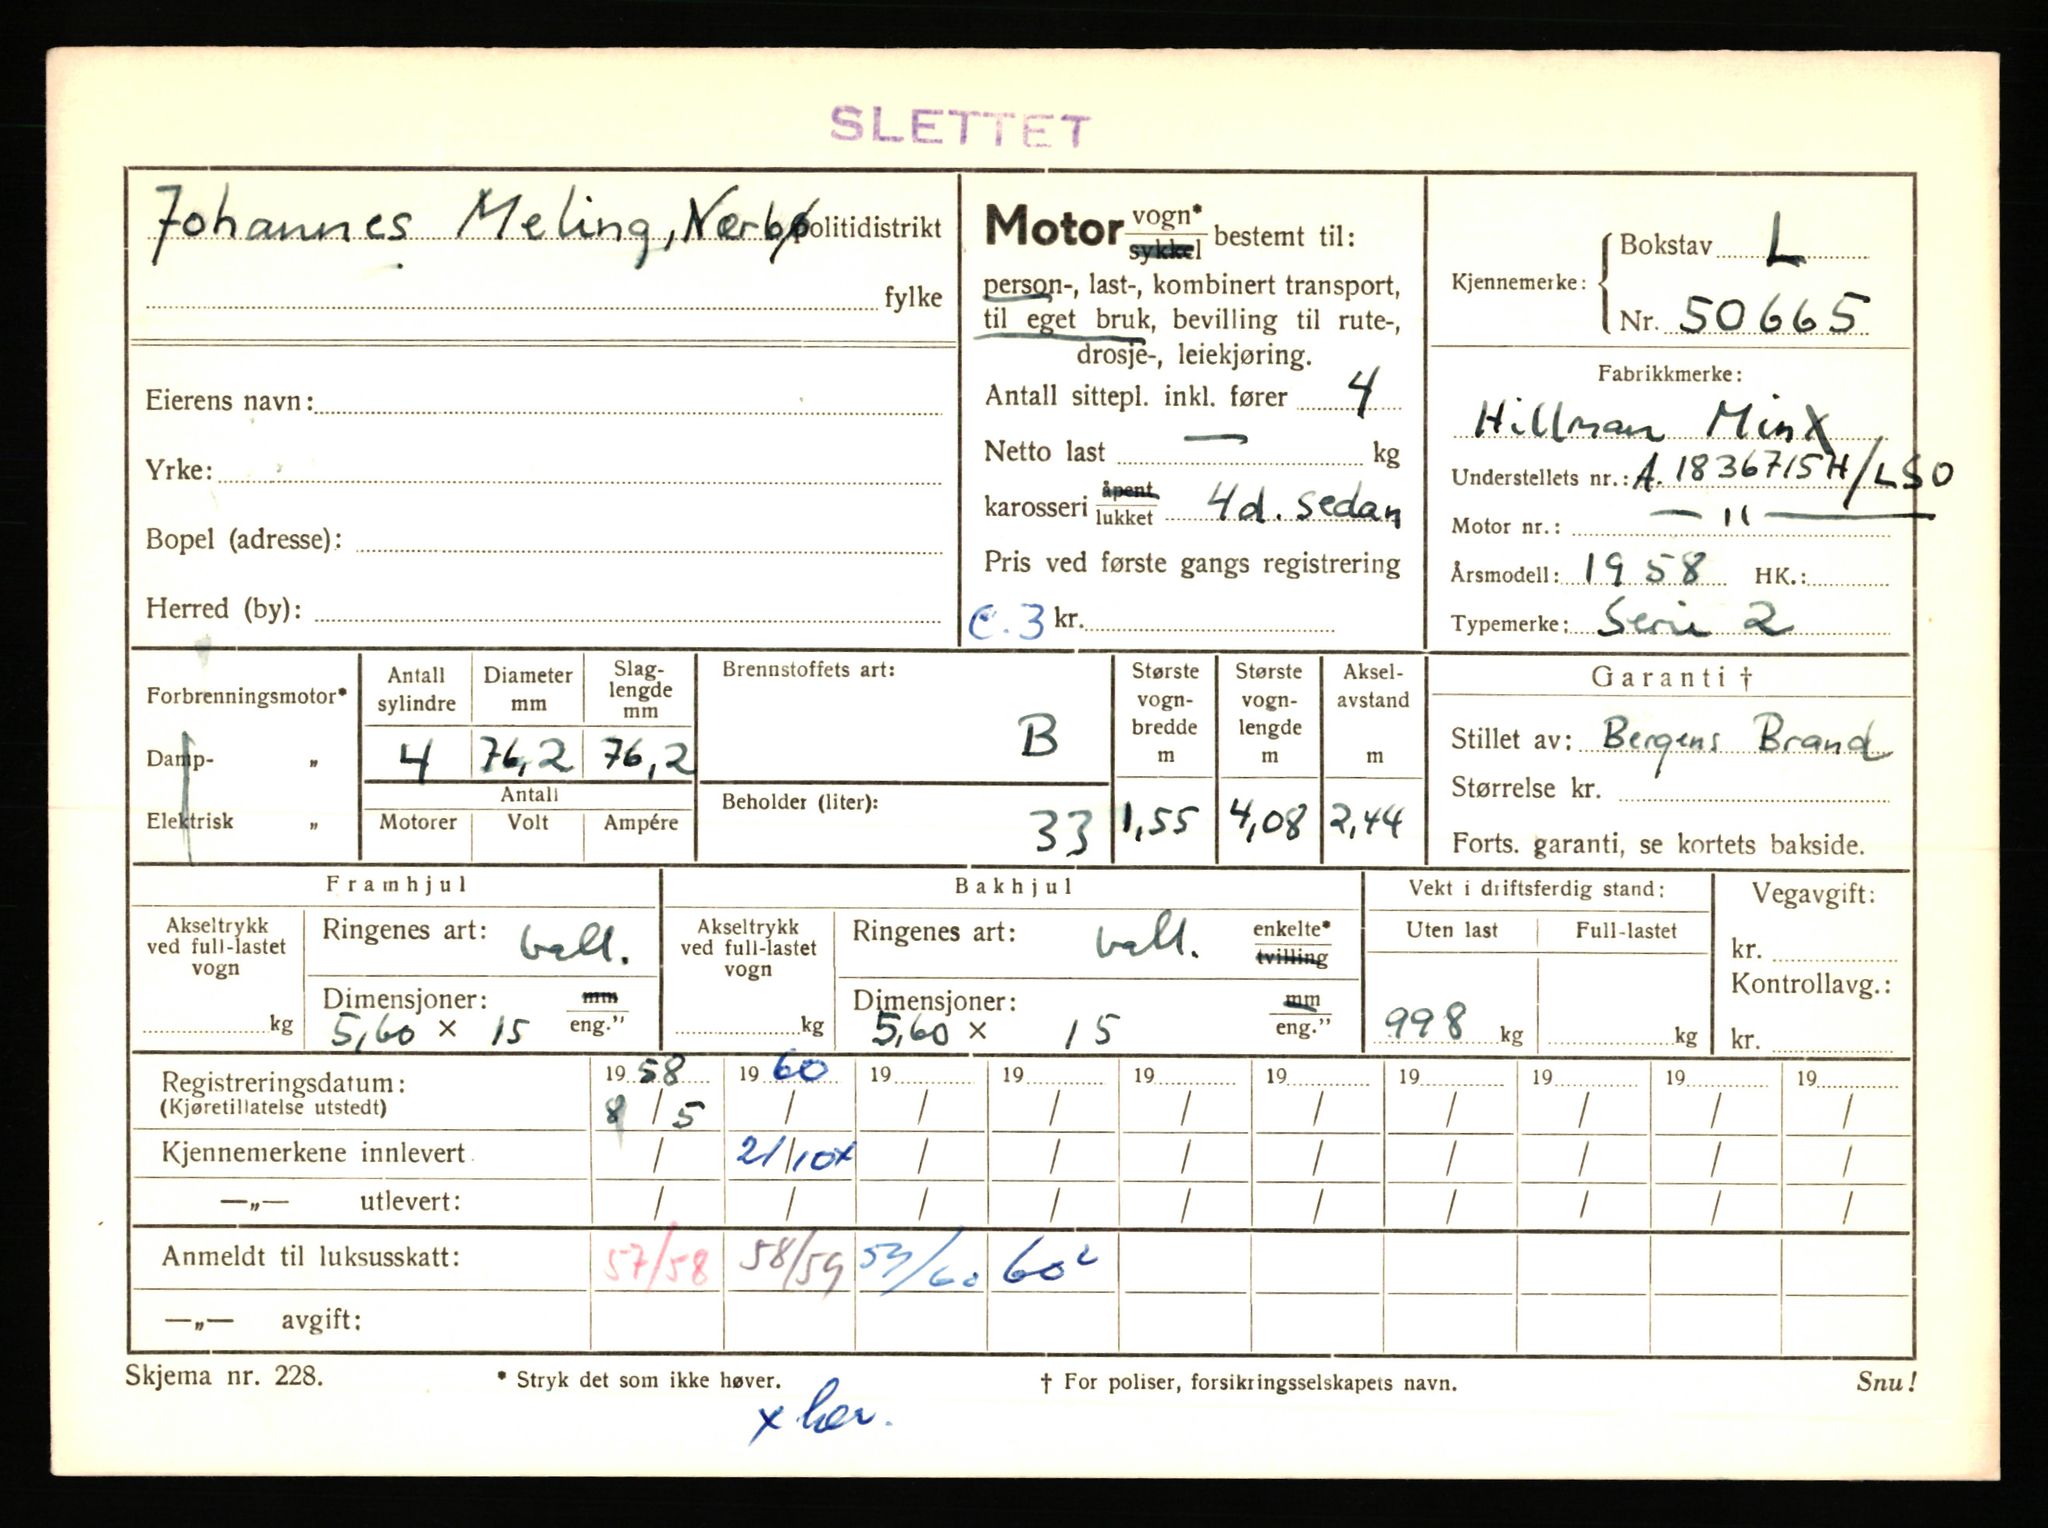 SLETTET
Johannes Meling, Nærbø politidistrikt
fylke
Eierens navn:
Yrke:
Bopel (adresse):
Herred (by):
Motor vogn* sykkel bestemt til:
person-, last-, kombinert transport,
til eget bruk, bevilling til rute-,
drosje-, leiekjøring.
Antall sittepl. inkl. fører 4
Netto last — kg
karosseri åpent lukket 4d. sedan
Pris ved første gangs registrering
C. 3 kr.
Kjennemerke: Bokstav L
Nr. 50665
Fabrikkmerke:
Hillman Minx
Understellets nr.: A. 1836715H/LSO
Motor nr.: — " —
Årsmodell: 1958 HK.:
Typemerke: Serie 2
Forbrenningsmotor*
Damp- „
Elektrisk „
Antall sylindre
4
Diameter mm
76,2
Slag-lengde mm
76,2
Antall
Motorer Volt Ampére
Brennstoffets art:
B
Beholder (liter):
33
Største vogn-bredde m
1,55
Største vogn-lengde m
4,08
Aksel-avstand m
2,44
Garanti †
Stillet av: Bergens Brand
Størrelse kr.
Forts. garanti, se kortets bakside.
Framhjul
Akseltrykk ved full-lastet vogn
kg
Ringenes art: ball.
Dimensjoner: mm eng."
5,60 × 15
Bakhjul
Akseltrykk ved full-lastet vogn
kg
Ringenes art: ball. enkelte* tvilling
Dimensjoner: mm eng."
5,60 × 15
Vekt i driftsferdig stand:
Uten last Full-lastet
998 kg kg
Vegavgift:
kr.
Kontrollavg.:
kr.
Registreringsdatum: 1958 1960 19 19 19 19 19 19 19 19
(Kjøretillatelse utstedt) 8/5 / / / / / / / / /
Kjennemerkene innlevert / 21/10x / / / / / / / /
—„— utlevert: / / / / / / / / / /
Anmeldt til luksusskatt: 57/58 58/59 59/60 60²
—„— avgift:
Skjema nr. 228. * Stryk det som ikke høver. † For poliser, forsikringsselskapets navn. Snu!
x her.